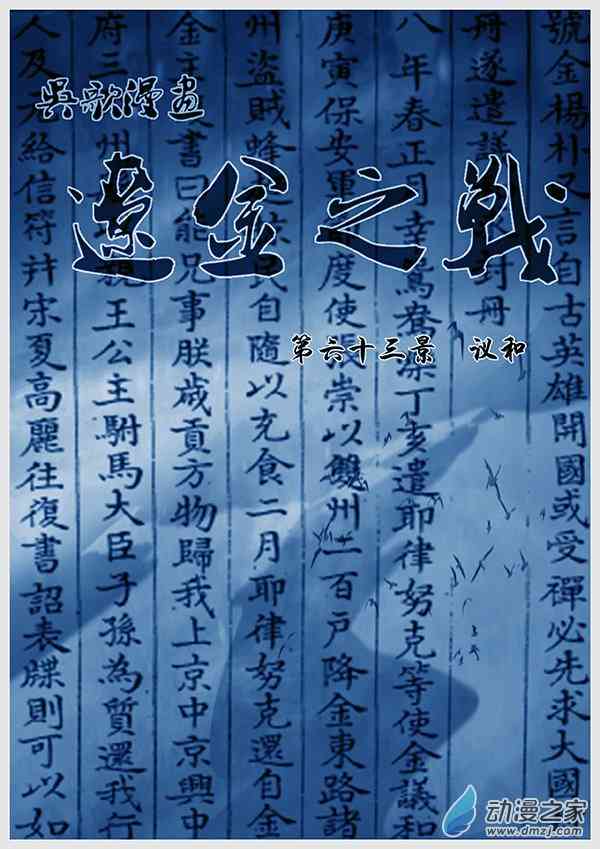 吳歌漫畫
遼金之戰
第六十三景 议和
號金楊朴又言自古英雄開國或受禪必先求大國
冊遂遣 封冊
八年春正月幸鴛 濼丁亥遣耶律努克等使金議和
庚寅保安軍 度使張崇以雙州二百戶降金東路諸
州盜賊蜂 民自隨以充食二月耶律努克還自金
金主 書曰能兄事朕歲貢方物歸我上京中京興中
府三 州 親王公主駙馬大臣子孫為質還我行
人及 給信符幷宋夏高麗往復書詔表牒則可以如
动漫之家
www.dmzj.com